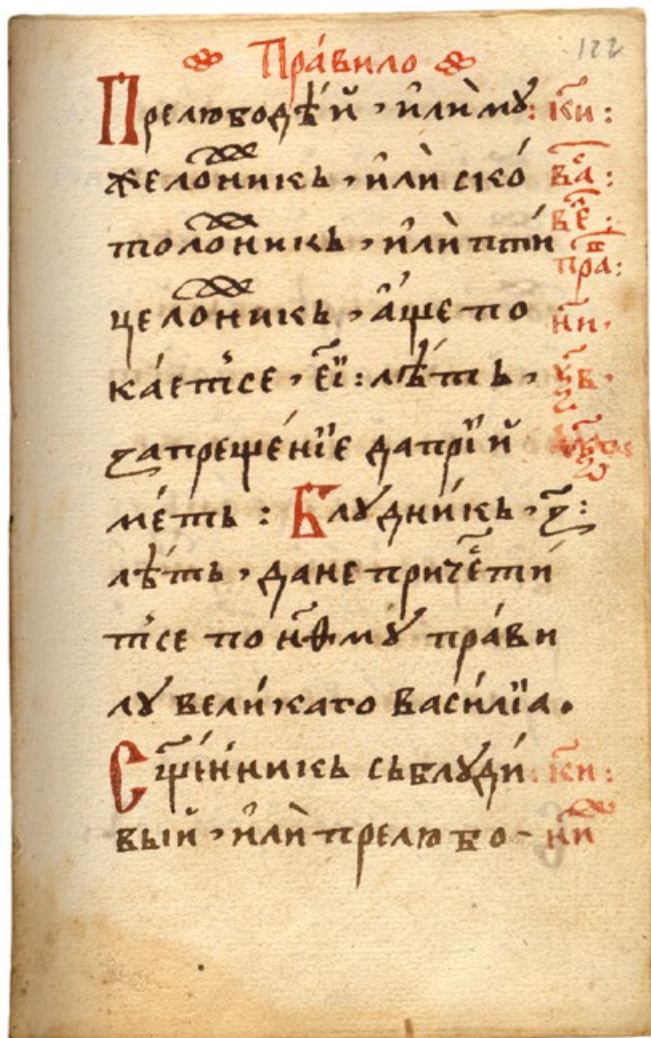 Пра́вило
122
Прелюбодѣ́й, илѝ му
желоⷤникь, илѝ ско́
толоⷤникь, илѝ пти́
целоⷤникь, а҆́ще по
ка́етсе, е҃і: лѣ́ть,
запреще́нїе да прїи́
меть: Блꙋдни́кь, з҃:
лѣ́ть, да не причеⷭ҇ти́
тсе по н҃ѳ мꙋ пра́ви
лꙋ вели́каго васи́лїа.
С҃щенникь сьблꙋди́
вый, илѝ прелюбо-